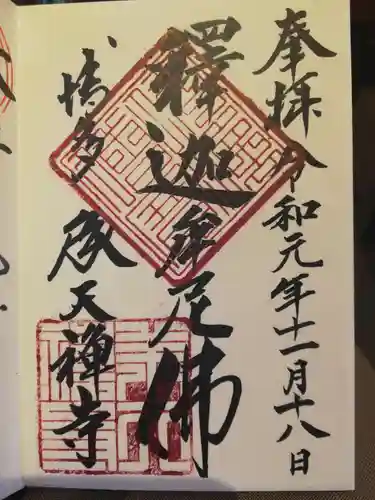 奉拝 令和元年十一月十八日
釋迦牟尼佛
博多 承天禅寺